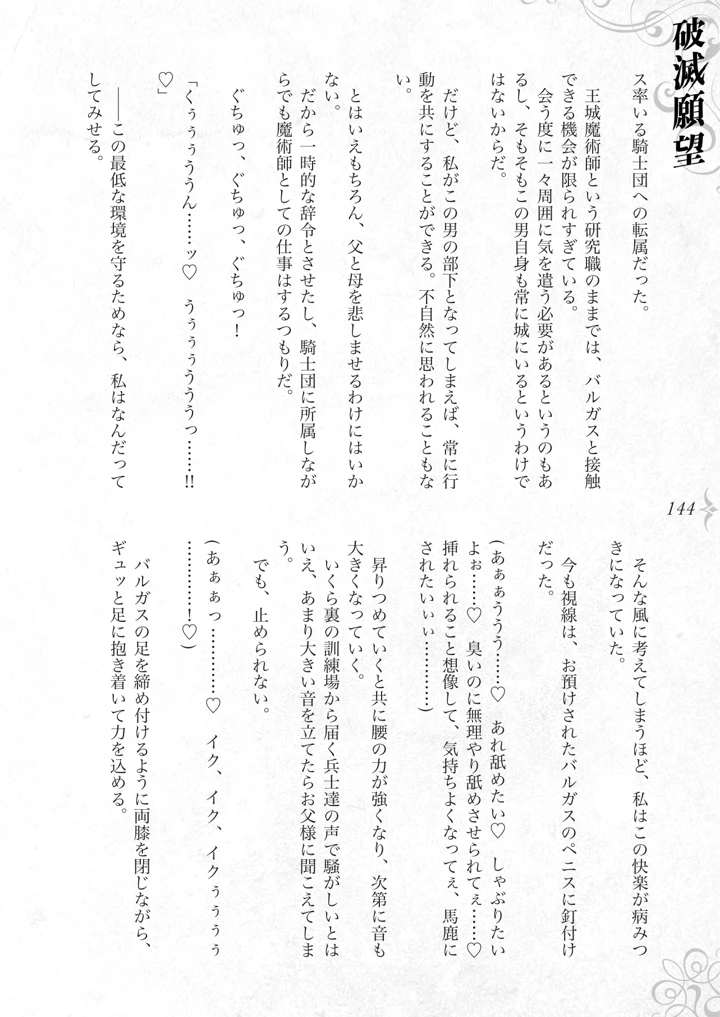 破滅願望
ス率いる騎士団への転属だった。
王城魔術師という研究職のままでは、バルガスと接触
できる機会が限られすぎている。
会う度に一々周囲に気を遣う必要があるというのもあ
るし、そもそもこの男自身も常に城にいるというわけで
はないからだ。
だけど、私がこの男の部下となってしまえば、常に行
動を共にすることができる。不自然に思われることもな
い。
とはいえもちろん、父と母を悲しませるわけにはいか
ない。
だから一時的な辞令とさせたし、騎士団に所属しなが
らでも魔術師としての仕事はするつもりだ。
ぐちゅっ、ぐちゅっ、ぐちゅっ！
「くぅぅぅううん……ッ♡　うぅぅぅううっ……!!
♡」
――この最低な環境を守るためなら、私はなんだって
してみせる。
144
そんな風に考えてしまうほど、私はこの快楽が病みつ
きになっていた。
今も視線は、お預けされたバルガスのペニスに釘付け
だった。
(あぁぁううう……♡　あれ舐めたい♡　しゃぶりたい
よぉ……♡　臭いのに無理やり舐めさせられてぇ……♡
挿れられること想像して、気持ちよくなってぇ、馬鹿に
されたいぃぃ…………)
昇りつめていくと共に腰の力が強くなり、次第に音も
大きくなっていく。
いくら裏の訓練場から届く兵士達の声で騒がしいとは
いえ、あまり大きい音を立てたらお父様に聞こえてしま
う。
でも、止められない。
(あぁぁっ…………♡　イク、イク、イクぅぅぅぅ
…………！♡)
バルガスの足を締め付けるように両膝を閉じながら、
ギュッと足に抱き着いて力を込める。